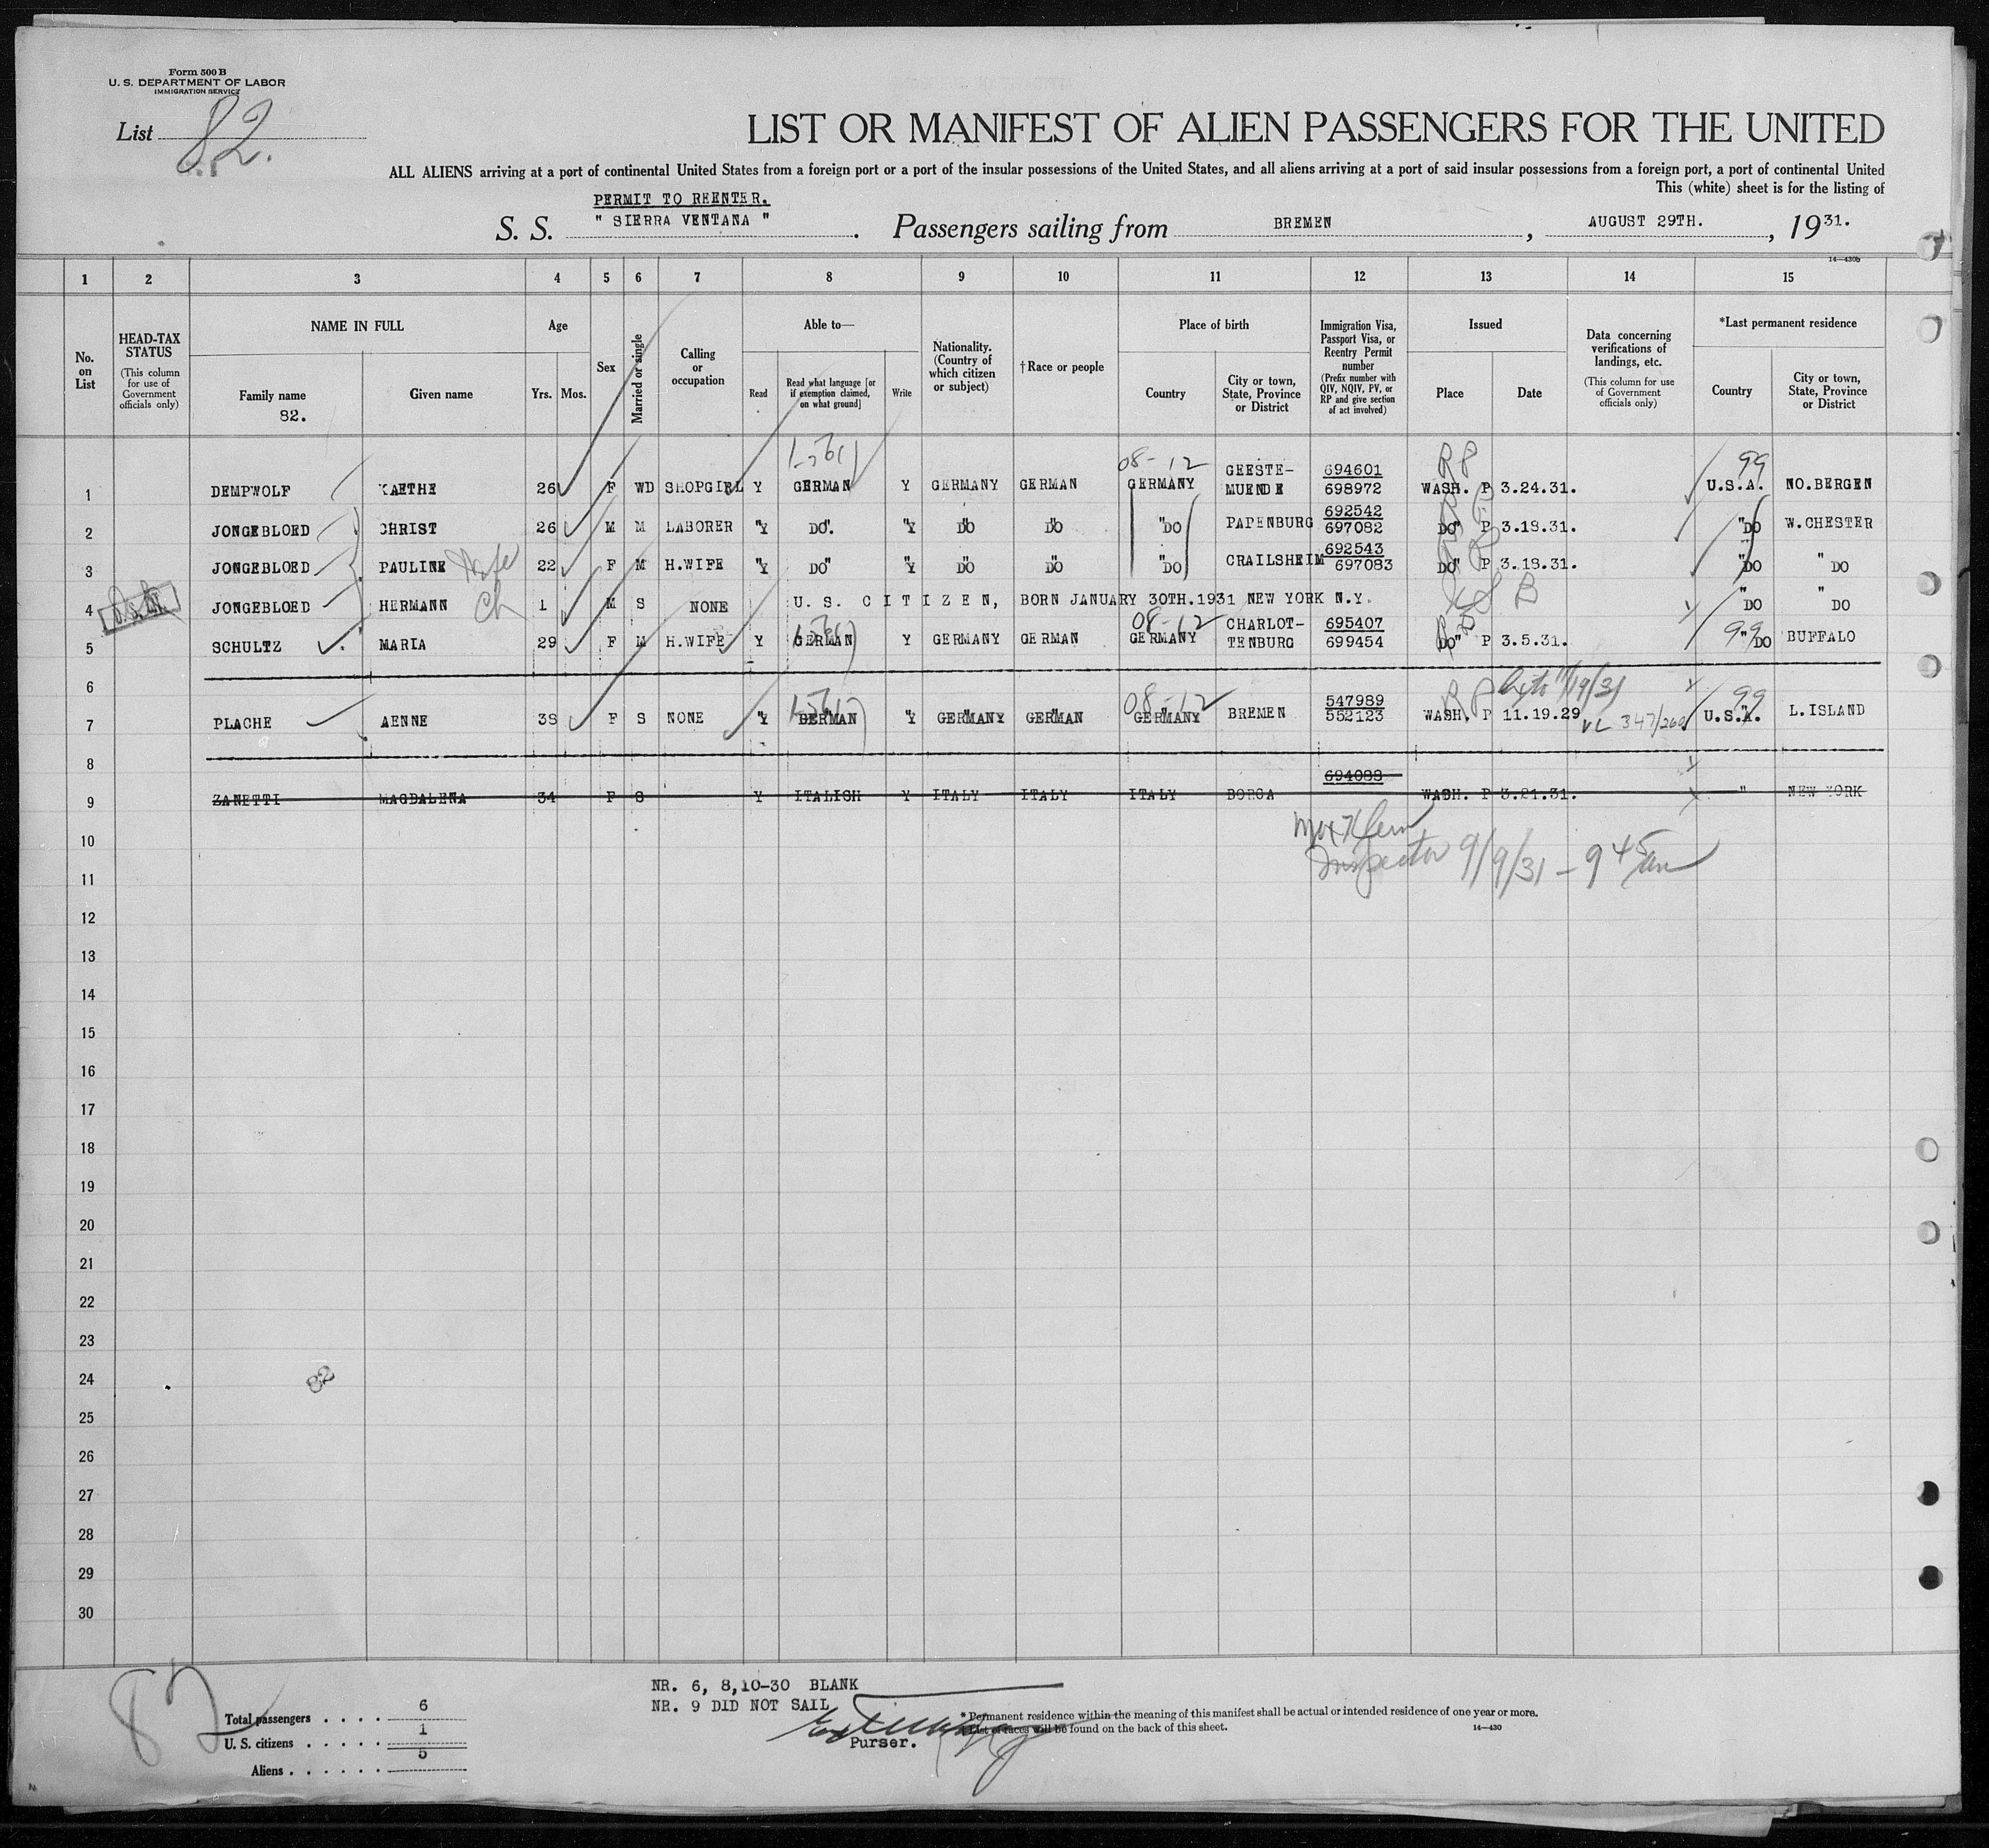 Form 500 B
U. S. DEPARTMENT OF LABOR
IMMIGRATION SERVICE
List 82.
LIST OR MANIFEST OF ALIEN PASSENGERS FOR THE UNITED
ALL ALIENS arriving at a port of continental United States from a foreign port or a port of the insular possessions of the United States, and all aliens arriving at a port of said insular possessions from a foreign port, a port of continental United
This (white) sheet is for the listing of
PERMIT TO REENTER.
S. S. " SIERRA VENTANA " . Passengers sailing from BREMEN , AUGUST 29TH. , 19 31.
14—430b
1 2 3 4 5 6 7 8 9 10 11 12 13 14 15
No. on List
HEAD-TAX STATUS (This column for use of Government officials only)
NAME IN FULL
Family name 82.
Given name
Age
Yrs. Mos.
Sex
Married or single
Calling or occupation
Able to—
Read
Read what language [or if exemption claimed, on what ground]
Write
Nationality. (Country of which citizen or subject)
†Race or people
Place of birth
Country
City or town, State, Province or District
Immigration Visa, Passport Visa, or Reentry Permit number (Prefix number with QIV, NQIV, PV, or RP and give section of act involved)
Issued
Place
Date
Data concerning verifications of landings, etc. (This column for use of Government officials only)
*Last permanent residence
Country
City or town, State, Province or District
08-12 RP 99
1 DEMPWOLF KAETHE 26 F WD SHOPGIRL Y GERMAN Y GERMANY GERMAN GERMANY GEESTE-MUENDE 694601 698972 WASH. P 3.24.31. U.S.A. NO.BERGEN
2 JONGEBLOED CHRIST 26 M M LABORER "Y DO. "Y DO DO "DO PAPENBURG 692542 697082 DO" P 3.18.31. "DO W.CHESTER
3 JONGEBLOED PAULINE Wife 22 F M H.WIFE "Y DO" "Y DO DO "DO CRAILSHEIM 692543 697083 DO" P 3.18.31. "DO " DO
4 JONGEBLOED HERMANN Ch 1 M S NONE U. S. C I T I Z E N, BORN JANUARY 30TH.1931 NEW YORK N.Y. "DO " DO
08-12 99
5 SCHULTZ MARIA 29 F M H.WIFE Y GERMAN Y GERMANY GERMAN GERMANY CHARLOT-TENBURG 695407 699454 DO" P 3.5.31. "DO BUFFALO
6
08-12 RP 11/19/31 99
7 PLACHE AENNE 38 F S NONE "Y GERMAN "Y GERMANY GERMAN GERMANY BREMEN 547989 552123 WASH. P 11.19.29 VL 347/260 U.S.A. L.ISLAND
8
9 ZANETTI MAGDALENA 34 F S Y ITALISH Y ITALY ITALY ITALY BORCA 694088 WASH. P 3.21.31. " NEW YORK
10
Inspector 9/9/31 - 9 45 am
11
12
13
14
15
16
17
18
19
20
21
22
23
24 82
25
26
27
28
29
30
82
Total passengers . . . . 6
U. S. citizens . . . . . 1
Aliens . . . . . . 5
NR. 6, 8,10-30 BLANK
NR. 9 DID NOT SAIL
Purser.
* Permanent residence within the meaning of this manifest shall be actual or intended residence of one year or more.
List of races will be found on the back of this sheet.
14—430